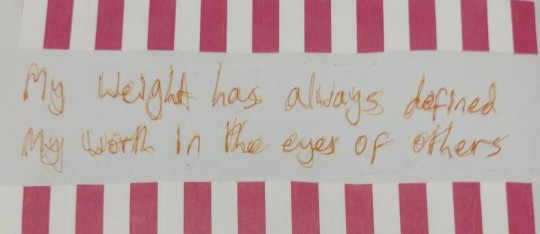 My weight has always defined
My worth in the eyes of others